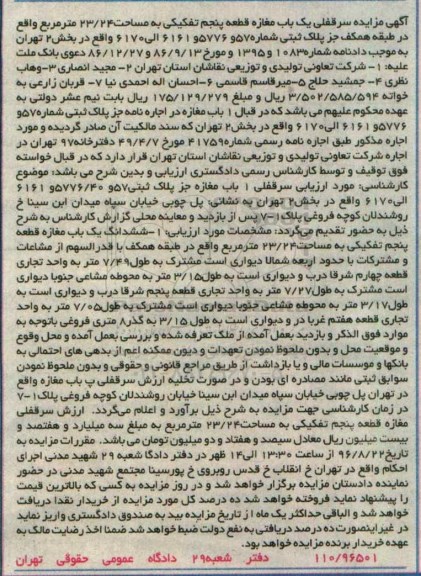 آگهی مزایده سرقفلی یک باب مغازه قطعه پنجم تفکیکی به مساحت۲۳/۲۴ مترمربع واقع
در طبقه همکف جز پلاک ثبتی شماره۵۷و ۵۷۷۶و ۶۱۶۱ الی۶۱۷۰ واقع در بخش۲ تهران
به موجب دادنامه شماره۱۰۸۳و ۱۳۹۵ و مورخ ۸۶/۹/۱۳ و ۸۶/۱۲/۲۷ دعوی بانک ملت
علیه: ۱- شرکت تعاونی تولیدی و توزیعی نقاشان استان تهران ۲- مجید انصاری ۳-وهاب
نظری ۴- جمشید حلاج ۵-میرقاسم قاسمی ۶-احسان اله احمدی نیا ۷- قربان زارعی به
خواته ۳/۵۰۲/۵۸۵/۵۹۴ ریال و مبلغ ۱۷۵/۱۲۹/۲۷۹ ریال بابت نیم عشر دولتی به
عهده محکوم علیهم می باشد که در قبال ۱ باب مغازه در اجاره نامه جز پلاک ثبتی شماره۵۷و
۵۷۷۶و ۶۱۶۱ الی۶۱۷۰ واقع در بخش۲ تهران که سند مالکیت آن صادر گردیده و مورد
اجاره مذکور طبق اجاره نامه رسمی شماره۴۱۷۵۹ مورخ ۴۹/۴/۷ دفترخانه۹۷ تهران در
اجاره شرکت تعاونی تولیدی و توزیعی نقاشان استان تهران قرار دارد که در قبال خواسته
فوق توقیف و توسط کارشناس رسمی دادگستری ارزیابی و بدین شرح می باشد: موضوع
کارشناسی: مورد ارزیابی سرقفلی ۱ باب مغازه جز پلاک ثبتی۵۷و ۵۷۷۶/۴۰و ۶۱۶۱
الی۶۱۷۰ واقع در بخش۲ تهران به نشانی: پل چوبی خیابان سپاه میدان ابن سینا خ
روشندلان کوچه فروغی پلاک۱-۷ پس از بازدید و معاینه محلی گزارش کارشناس به شرح
ذیل به حضور تقدیم می‌گردد: مشخصات مورد ارزیابی: ۱-ششدانگ یک باب مغازه قطعه
پنجم تفکیکی به مساحت۲۳/۲۴ مترمربع واقع در طبقه همکف با قدرالسهم از مشاعات
و مشترکات با حدود اربعه شمالا دیواری است مشترک به طول۷/۴۹ متر به واحد تجاری
قطعه چهارم شرقا درب و دیواری است به طول۳/۱۵ متر به محوطه مشاعی جنوبا دیواری
است مشترک به طول۷/۲۷ متر به واحد تجاری قطعه پنجم شرقا درب و دیواری است به
طول۳/۱۷ متر به محوطه مشاعی جنوبا دیواری است مشترک به طول۷/۰۵ متر به واحد
تجاری قطعه هفتم غربا در و دیواری است به طول ۳/۱۵ به گذر۸ متری فروغی باتوجه به
موارد فوق الذکر و بازدید بعمل آمده از ملک تعرفه شده و بررسی بعمل آمده و محل وقوع
و موقعیت محل و بدون ملحوظ نمودن تعهدات و دیون ممکنه اعم از بدهی های احتمالی به
بانکها و موسسات مالی و یا بازداشت از طریق مراجع قانونی و حقوقی و بدون ملحوظ نمودن
سوابق ثبتی مانند مصادره ای بودن و در صورت تخلیه ارزش سرقفلی پ باب مغازه واقع
در تهران پل چوبی خیابان سپاه میدان ابن سینا خیابان روشندلان کوچه فروغی پلاک۱-۷
در زمان کارشناسی جهت مزایده به شرح ذیل برآورد و اعلام می‌گردد. ارزش سرقفلی
مغازه قطعه پنجم تفکیکی به مساحت۲۳/۲۴ مترمربع به مبلغ سه میلیارد و هفتصد و
بیست میلیون ریال معادل سیصد و هفتاد و دو میلیون تومان می باشد. مقررات مزایده به
تاریخ۹۶/۸/۲۲ از ساعت ۱۳:۳۰ الی۱۴ ظهر در دفتر دادگا شعبه ۲۹ شهید مدنی اجرای
احکام واقع در تهران خ انقلاب خ قدس روبروی خ پورسینا مجتمع شهید مدنی در حضور
نماینده دادستان مزایده برگزار خواهد شد و در روز مزایده به کسی که بالاترین قیمت
را پیشنهاد نماید فروخته خواهد شد ده درصد کل مورد مزایده از خریدار نقدا دریافت
خواهد شد و الباقی حداکثر یک ماه از تاریخ مزایده بید به صندوق دادگستری واریز نماید
در غیراینصورت ده درصد دریافتی به نفع دولت ضبط خواهد شد ضمنا اخذ رضایت مالک به
عهده خریدار برنده مزایده خواهد بود.
۱۱۰/۹۶۵۰۱ دفتر شعبه۲۹ دادگاه عمومی حقوقی تهران